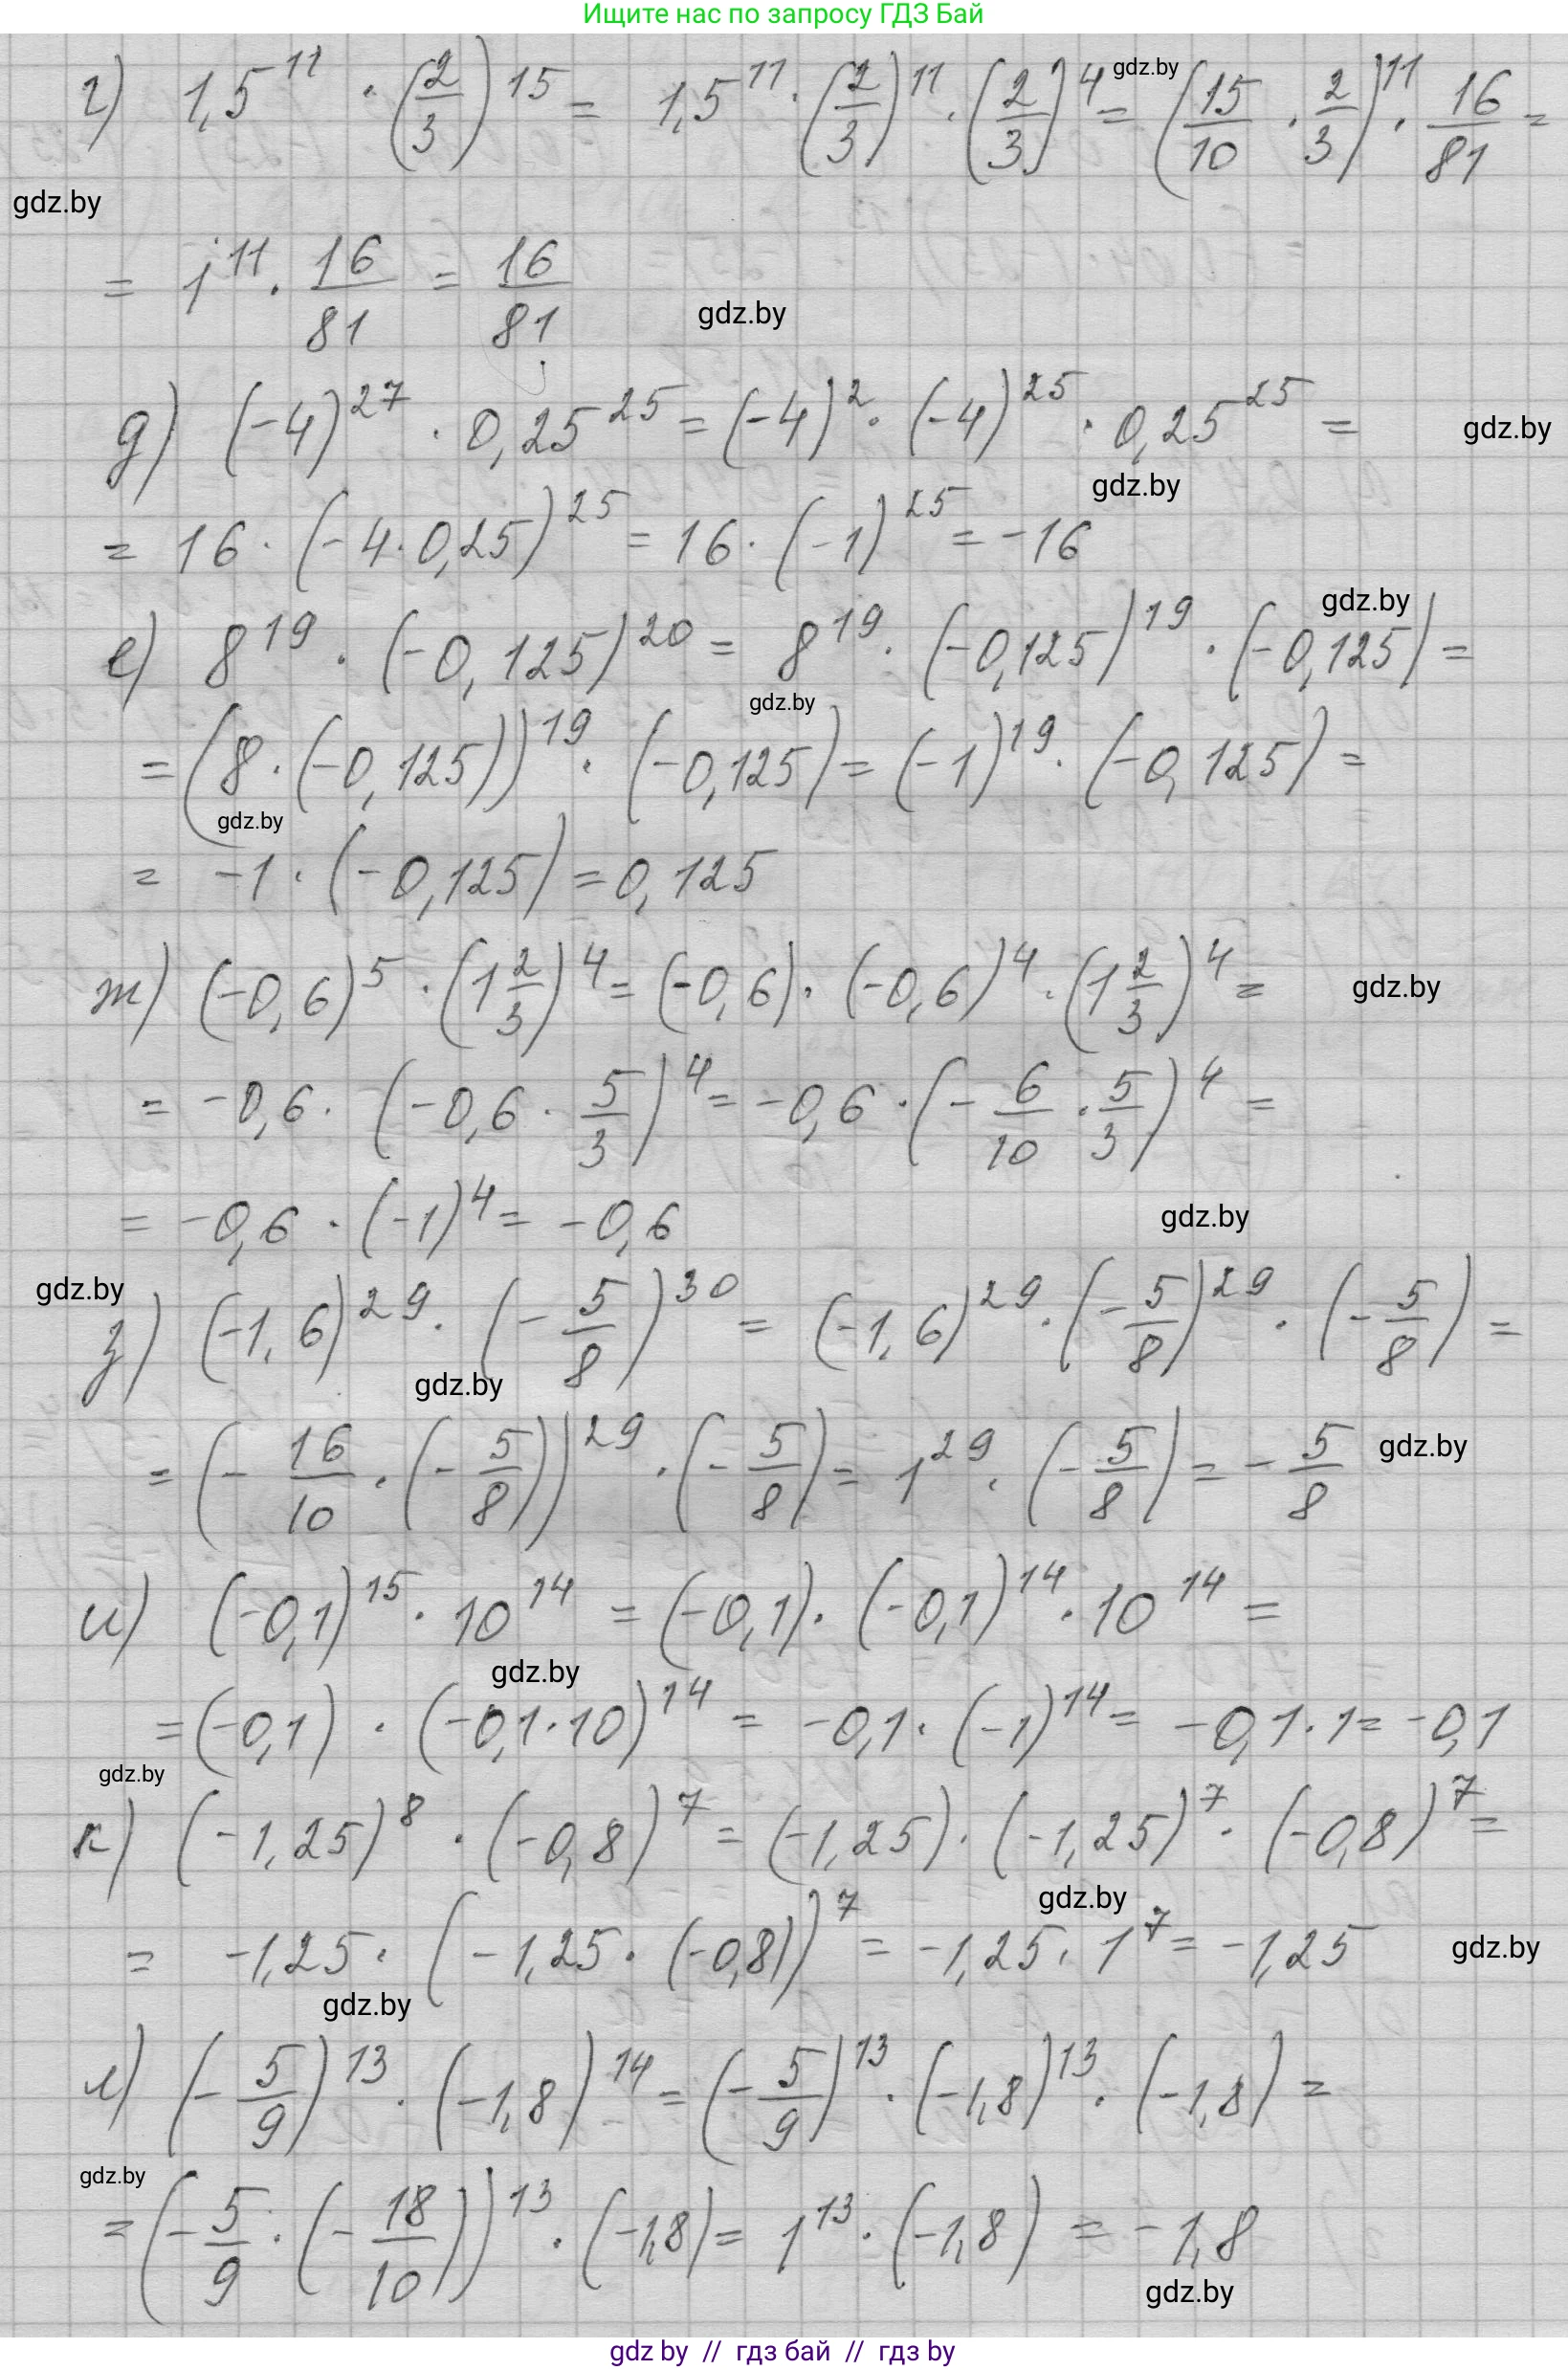 Ищите нас по запросу ГДЗ Бай
г) 1,5^11 · (2/3)^15 = 1,5^11 · (2/3)^11 · (2/3)^4 = (15/10 · 2/3)^11 · 16/81 =
gdz.by
gdz.by
= 1^11 · 16/81 = 16/81
gdz.by
д) (-4)^27 · 0,25^25 = (-4)^2 · (-4)^25 · 0,25^25 =
gdz.by
gdz.by
= 16 · (-4 · 0,25)^25 = 16 · (-1)^25 = -16
gdz.by
е) 8^19 · (-0,125)^20 = 8^19 · (-0,125)^19 · (-0,125) =
gdz.by
= (8 · (-0,125))^19 · (-0,125) = (-1)^19 · (-0,125) =
gdz.by
= -1 · (-0,125) = 0,125
ж) (-0,6)^5 · (1 2/3)^4 = (-0,6) · (-0,6)^4 · (1 2/3)^4 =
gdz.by
= -0,6 · (-0,6 · 5/3)^4 = -0,6 · (- 6/10 · 5/3)^4 =
= -0,6 · (-1)^4 = -0,6
gdz.by
gdz.by
з) (-1,6)^29 · (- 5/8)^30 = (-1,6)^29 · (- 5/8)^29 · (- 5/8) =
gdz.by
= (- 16/10 · (- 5/8))^29 · (- 5/8) = 1^29 · (- 5/8) = - 5/8
gdz.by
и) (-0,1)^15 · 10^14 = (-0,1) · (-0,1)^14 · 10^14 =
gdz.by
= (-0,1) · (-0,1 · 10)^14 = -0,1 · (-1)^14 = -0,1 · 1 = -0,1
gdz.by
к) (-1,25)^8 · (-0,8)^7 = (-1,25) · (-1,25)^7 · (-0,8)^7 =
gdz.by
= -1,25 · (-1,25 · (-0,8))^7 = -1,25 · 1^7 = -1,25
gdz.by
gdz.by
л) (- 5/9)^13 · (-1,8)^14 = (- 5/9)^13 · (-1,8)^13 · (-1,8) =
gdz.by
= (- 5/9 · (- 18/10))^13 · (-1,8) = 1^13 · (-1,8) = -1,8
gdz.by
gdz by // гдз бай // гдз by